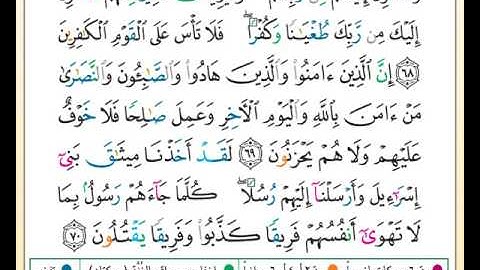 إِلَيْكَ مِن رَّبِّكَ طُغْيَٰنًا وَكُفْرًا ۖ فَلَا تَأْسَ عَلَى ٱلْقَوْمِ ٱلْكَٰفِرِينَ
٦٨ إِنَّ ٱلَّذِينَ ءَامَنُوا۟ وَٱلَّذِينَ هَادُوا۟ وَٱلصَّٰبِـُٔونَ وَٱلنَّصَٰرَىٰ
مَنْ ءَامَنَ بِٱللَّهِ وَٱلْيَوْمِ ٱلْءَاخِرِ وَعَمِلَ صَٰلِحًا فَلَا خَوْفٌ
عَلَيْهِمْ وَلَا هُمْ يَحْزَنُونَ ٦٩ لَقَدْ أَخَذْنَا مِيثَٰقَ بَنِىٓ
إِسْرَٰٓءِيلَ وَأَرْسَلْنَآ إِلَيْهِمْ رُسُلًا ۖ كُلَّمَا جَآءَهُمْ رَسُولٌۢ بِمَا
لَا تَهْوَىٰٓ أَنفُسُهُمْ فَرِيقًا كَذَّبُوا۟ وَفَرِيقًا يَقْتُلُونَ ٧٠